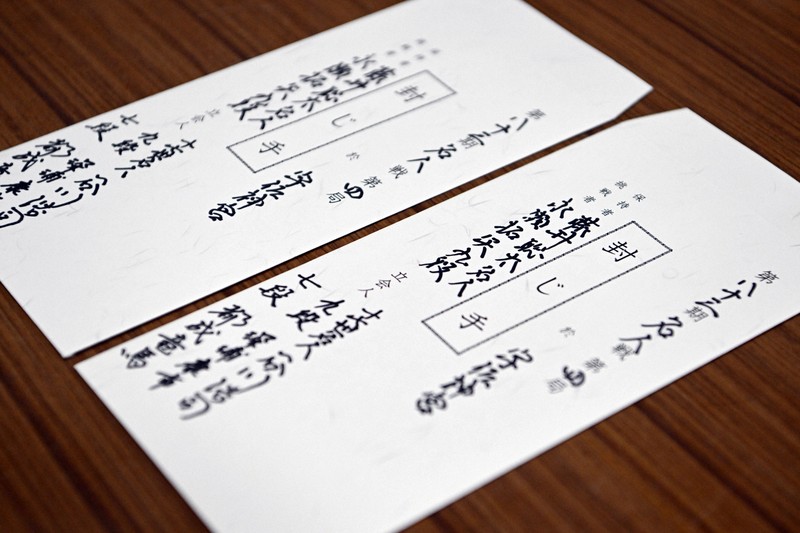 第八十三期 名人戦 第四局
於 宇佐神宮
封じ手
保持者 藤井聡太名人
挑戦者 永瀬拓矢九段
立会人
十七世名人 谷川浩司
九段 深浦康市
七段 都成竜馬
第八十三期 名人戦 第四局
於 宇佐神宮
封じ手
保持者 藤井聡太名人
挑戦者 永瀬拓矢九段
立会人
十七世名人 谷川浩司
九段 深浦康
七段 都成竜